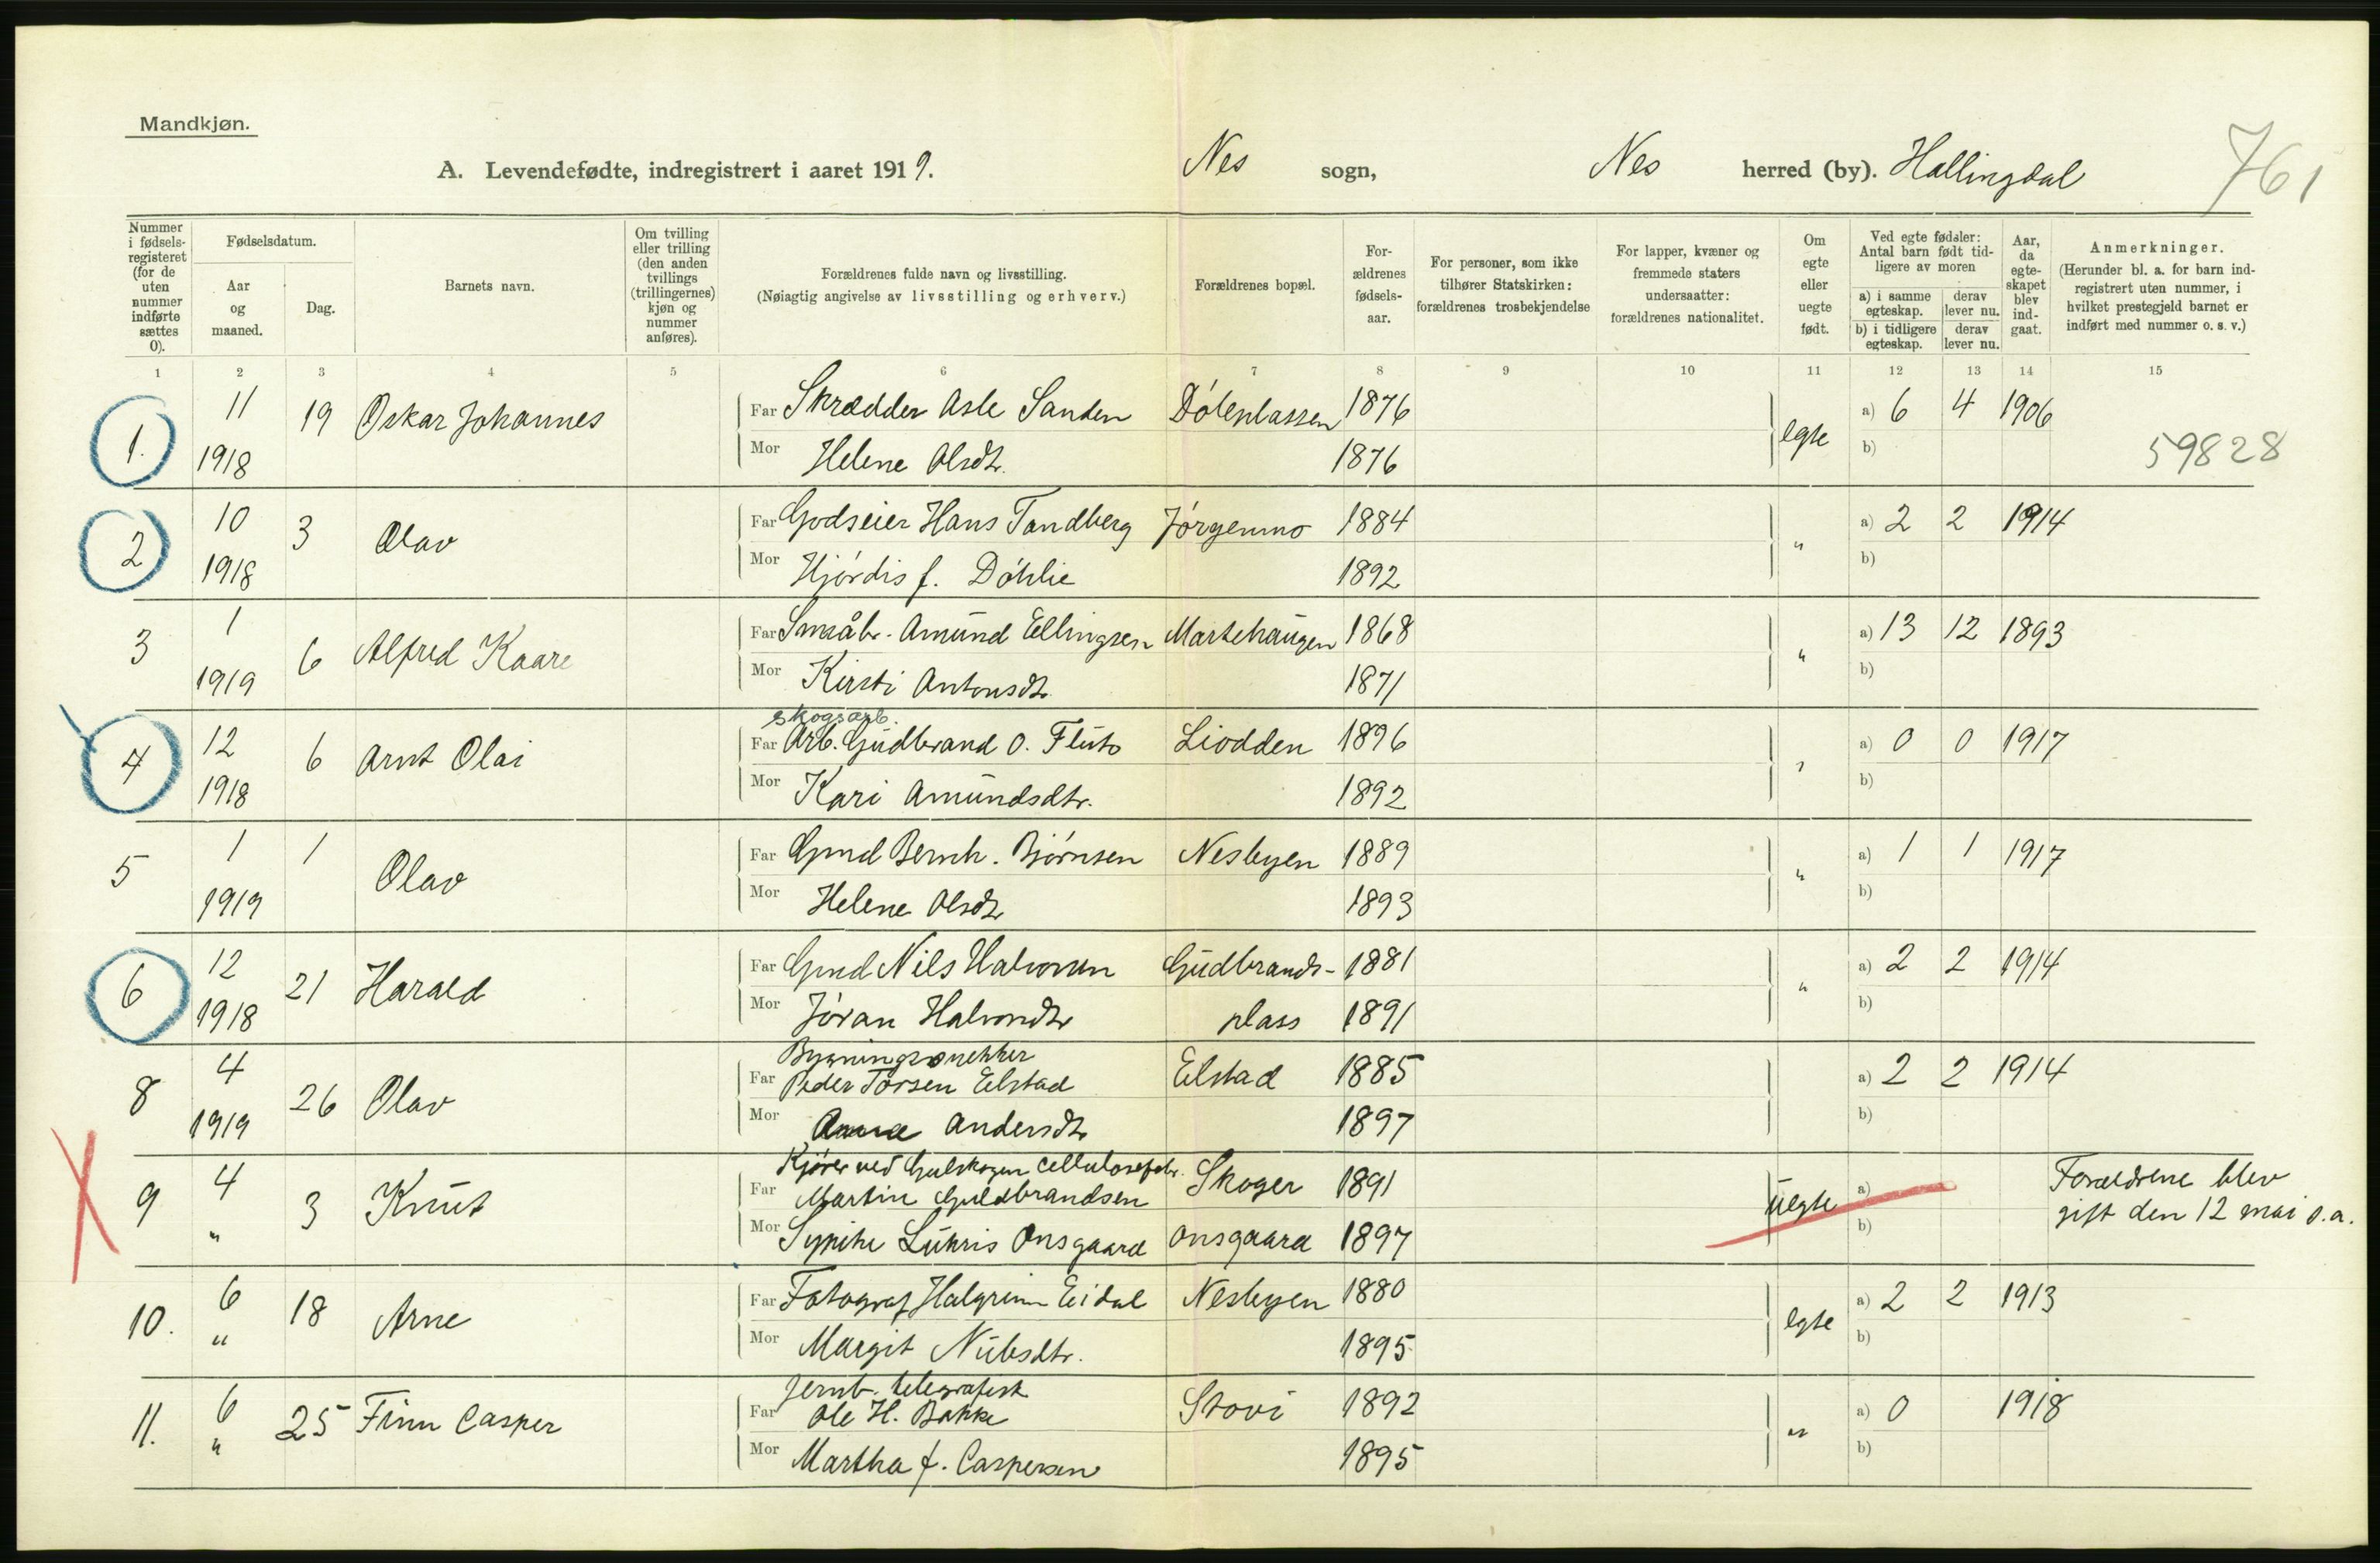 Mandkjøn.
A. Levendefødte, indregistrert i aaret 1919. Nes sogn, Nes herred (by). Hallingdal
761
Nummer i fødselsregisteret (for de uten nummer indførte sættes 0).
Fødselsdatum.
Aar og maaned.
Dag.
Barnets navn.
Om tvilling eller trilling (den anden tvillings (trillingernes) kjøn og nummer anføres).
Forældrenes fulde navn og livsstilling.
(Nøiagtig angivelse av livsstilling og erhverv.)
Forældrenes bopæl.
Forældrenes fødselsaar.
For personer, som ikke tilhører Statskirken: forældrenes trosbekjendelse
For lapper, kvæner og fremmede staters undersaatter: forældrenes nationalitet.
Om egte eller uegte født.
Ved egte fødsler: Antal barn født tidligere av moren
a) i samme egteskap. derav lever nu.
b) i tidligere egteskap. derav lever nu.
Aar, da egteskapet blev indgaat.
Anmerkninger.
(Herunder bl. a. for barn indregistrert uten nummer, i hvilket prestegjeld barnet er indført med nummer o. s. v.)
1 2 3 4 5 6 7 8 9 10 11 12 13 14 15
1. 11 19 Oskar Johannes Far Skrædder Asle Sanden Dølenplassen 1876 egte a) 6 4 1906
1918 Mor Helene Olsdtr. 1876 b) 59828
2 10 3 Olav Far Godseier Hans Tandberg Jørgenmo 1884 " a) 2 2 1914
1918 Mor Hjørdis f. Døhlie 1892 b)
3 1 6 Alfred Kaare Far Småbr. Amund Ellingsen Martehaugen 1868 " a) 13 12 1893
1919 Mor Kirsti Antonsdtr 1871 b)
skogsarb.
4 12 6 Arnt Olai Far Arb. Gudbrand O. Fluto Liodden 1896 " a) 0 0 1917
1918 Mor Kari Amundsdtr. 1892 b)
5 1 1 Olav Far Gmd Bernh. Bjørnsen Nesbyen 1889 " a) 1 1 1917
1919 Mor Helene Olsdtr 1893 b)
6 12 21 Harald Far Gmd Nils Halvorsen Gudbrands- 1881 " a) 2 2 1914
1918 Mor Jøran Halvorsdtr plass 1891 b)
Bygningssnekker
8 4 26 Olav Far Peder Torsen Eelstad Eelstad 1885 a) 2 2 1914
1919 Mor Anna Andersdtr 1897 b)
Kjører ved Gulskogen Cellulosefabr.
9 4 3 Knut Far Martin Guldbrandsen Skoger 1891 uegte a) Forældrene blev
" Mor Synike Lukris Onsgaard Onsgaard 1897 b) gift den 12 mai s.a.
10. 6 18 Arne Far Fotograf Halgrim Eidal Nesbyen 1880 egte a) 2 2 1913
" Mor Margit Nilsdtr. 1895 b)
Jernb. telegrafist
11. 6 25 Finn Casper Far Ole H. Bakke Stovi 1892 " a) 0 1918
" Mor Martha f. Caspersen 1895 b)